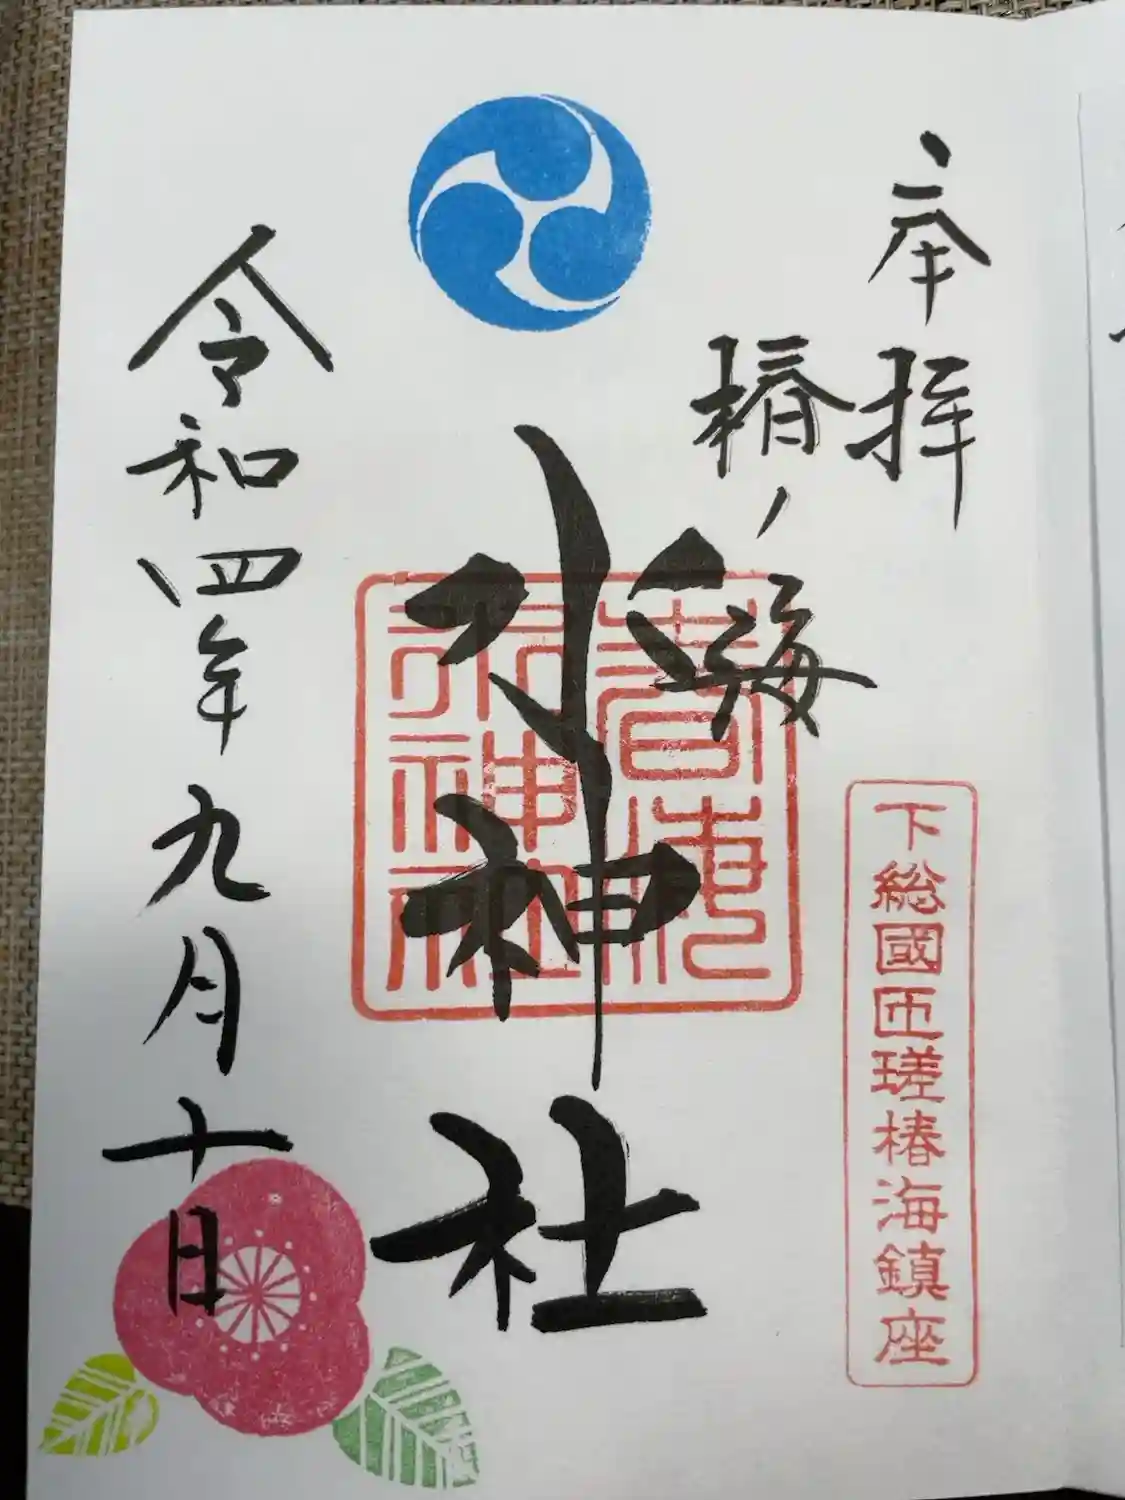 奉拝
下総國匝瑳椿海鎮座
椿ノ海
水神社
椿海
水神社
令和四年九月十日